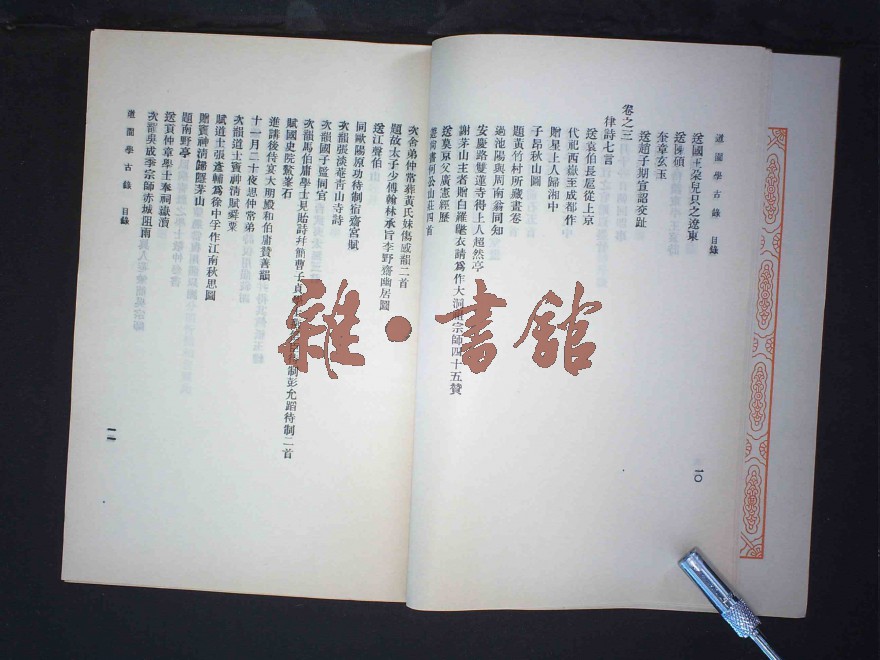 道園學古錄　目錄
送國王朵兒只之遼東
送陳碩
奎章玄玉
送趙子期宣詔交趾
卷之三
律詩七言
送袁伯長扈從上京
代祀西嶽至成都作
贈星上人歸湘中
子昂秋山圖
題黃竹村所藏畫卷
過池陽與周南翁同知
安慶路雙蓮寺得上人超然亭
謝茅山主者贈白羅氅衣請為作大洞宗師四十五贊
送莫京父廣憲經歷
尚書何公山莊四首
一〇
次舍弟仲常葬黃氏妹傷感韻二首
題故太子少傅翰林承旨李野齋幽居圖
送江聲伯
同歐陽原功待制宿齋宮賦
次張淡菴青山寺詩
次韻國子監同官
次韻馬伯庸學士見貽詩并簡曹子貞待制彭允蹈待制二首
賦國史院鰲峯石
進講後侍宴大明殿和伯庸贊善韻
十一月二十夜思仲常弟
次韻道士竇神清賦舜業
賦道士張彥輔為徐中孚作江南秋思圖
贈竇神清歸隱茅山
題南野亭
送貢仲章學士奉祠嶽瀆
次韻吳成季宗師赤城阻雨
道園學古錄　目錄
一一
雜·書館